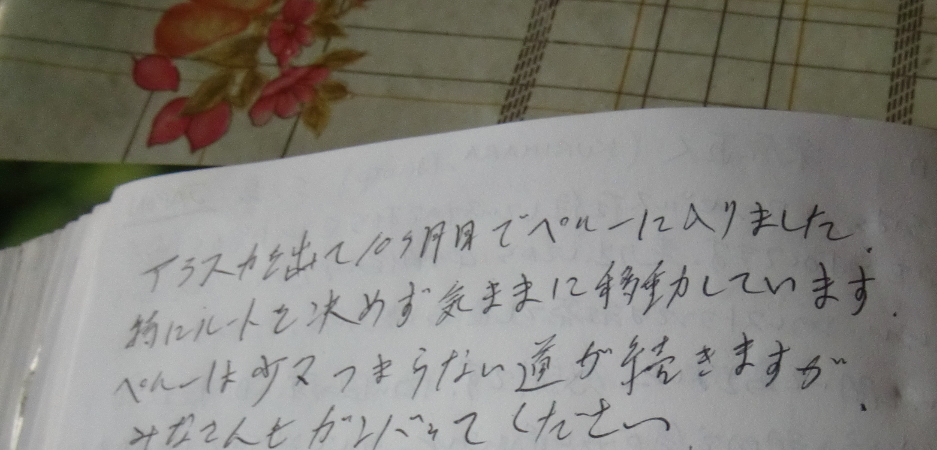 アラスカを出て10ヶ月目でペルーに入りました.
特にルートを決めず気ままに移動しています.
ペルーは少々つまらない道が続きますが
みなさんもガンバってください.